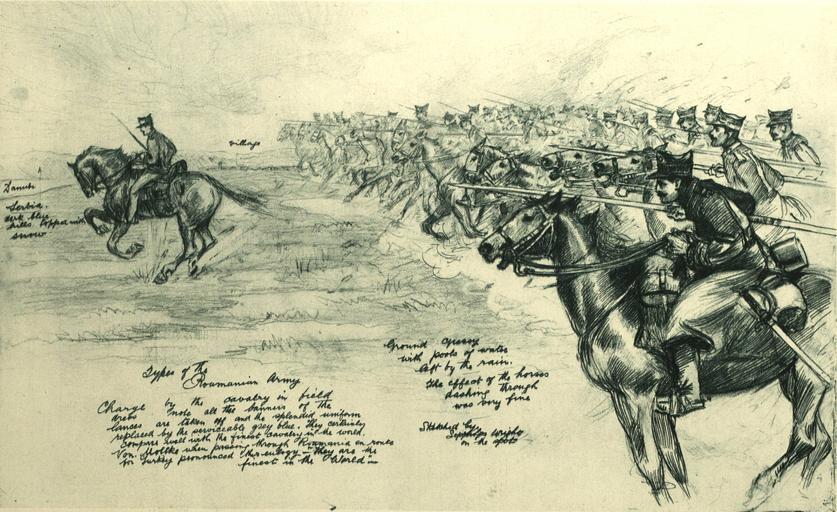 Danube
Serbia.
dark blue
hills topped with
snow
village
Types of the
Roumanian Army
Charge by the cavalry in field
dress note all the banners of the
lances are taken off and the splendid uniform
replaced by the serviceable grey blue. They certainly
compare well with the finest cavalry in the world.
Von Moltke when passing through Roumania en route
for Turkey pronounced they are the
finest in the World"
Ground grassy
with pools of water
left by the rain.
the effect of the horses
dashing through
was very fine
Sketched by
Seppings Wright
on the spot